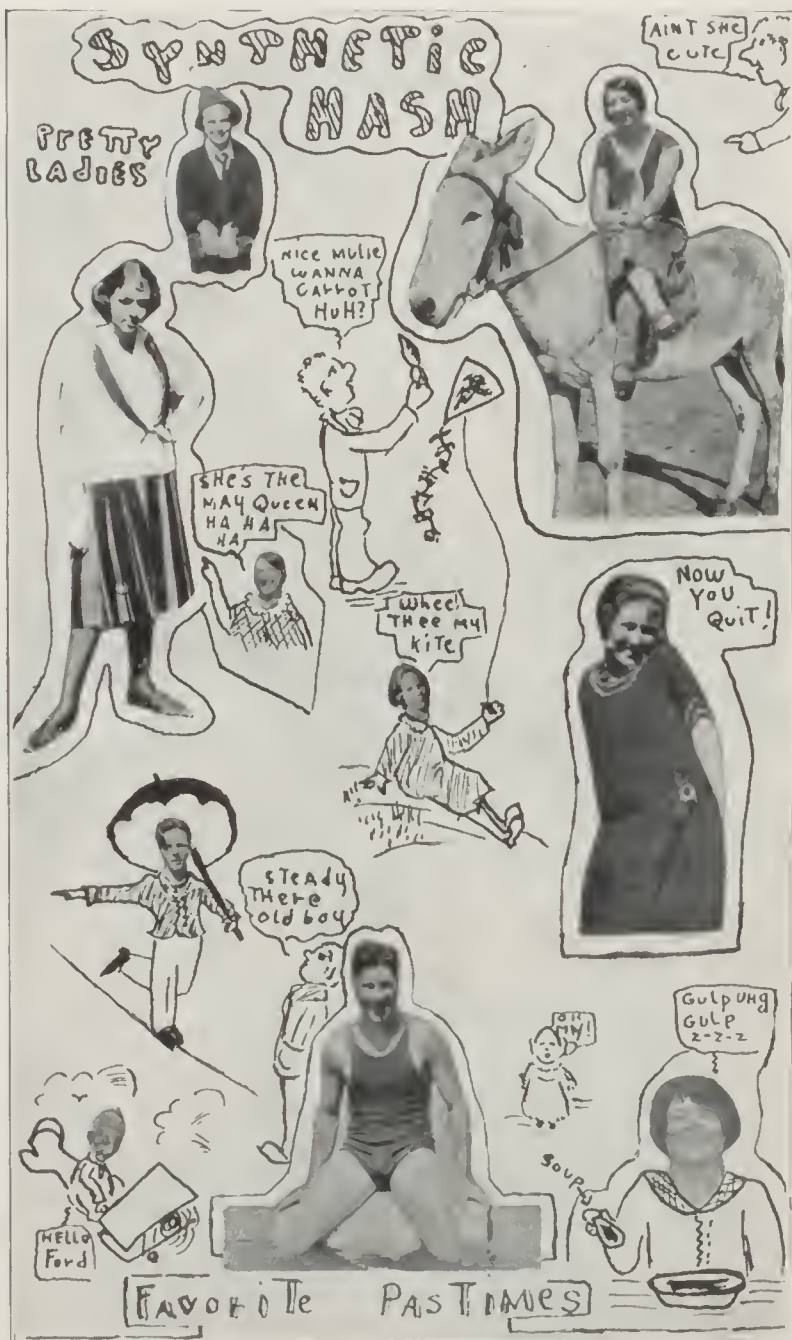 SYNTHETIC
HASH
AINT SHE
CUTE
PRETTY
LADIES
NICE MULIE
WANNA
CARROT
HUH?
SHE'S THE
MAY QUEEN
HA HA
HA
WHEE!
THEE MY
KITE
NOW
YOU
QUIT!
STEADY
THERE
OLD BOY
OH
MY!
GULP UHG
GULP
Z-Z-Z
SOUP
HELLO
Ford
FAVORITE PASTIMES